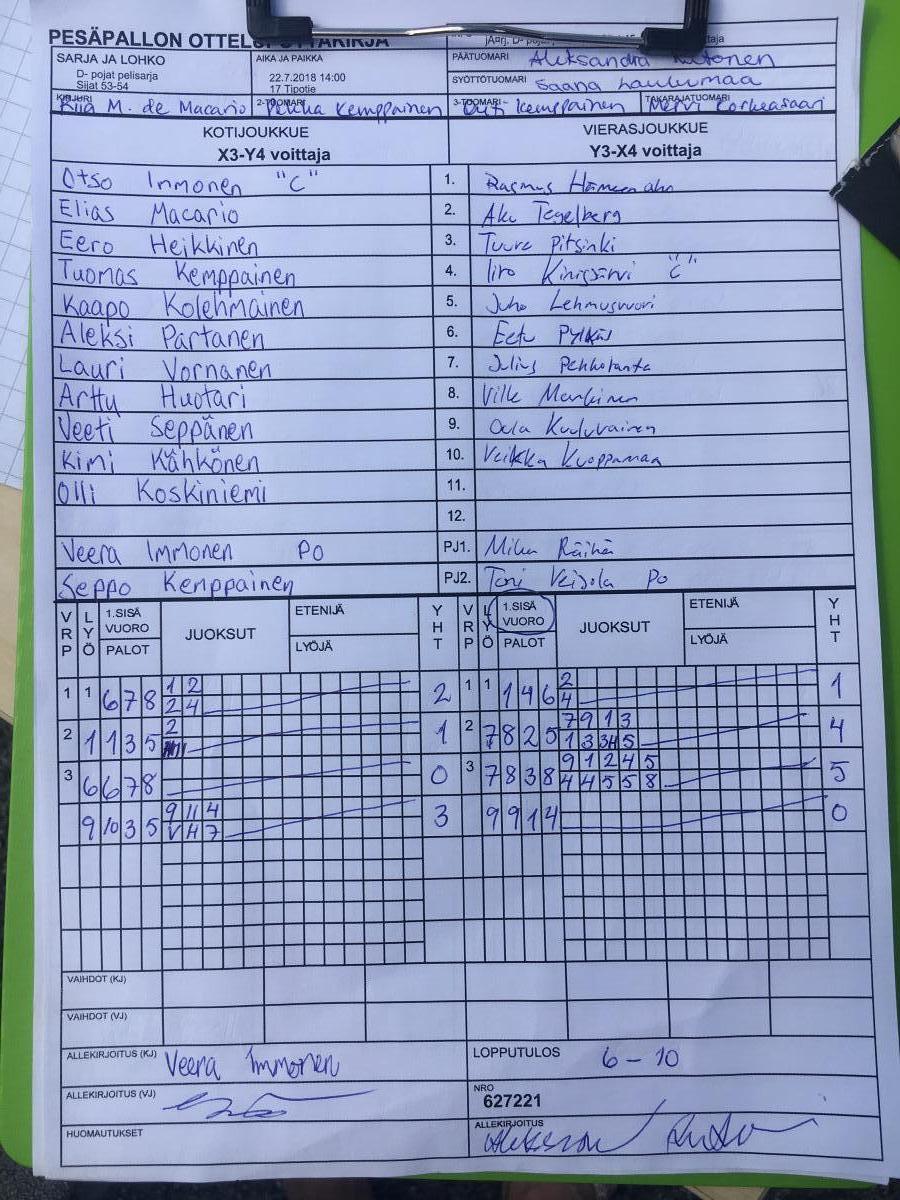 PESÄPALLON OTTELUPÖYTÄKIRJA
SARJA JA LOHKO
D- pojat pelisarja
Sijat 53-54
AIKA JA PAIKKA
22.7.2018 14:00
17 Tipotie
PÄÄTUOMARI Aleksandra
SYÖTTÖTUOMARI Saana
KIRJURI M. de Macario
2-TUOMARI Kemppainen
3-TUOMARI Kemppainen
TAKARAJATUOMARI Mervi Korkeasaari
KOTIJOUKKUE
X3-Y4 voittaja
VIERASJOUKKUE
Y3-X4 voittaja
Otso Inmonen "C" 1. Rasmus
Elias Macario 2. Aku Tegelberg
Eero Heikkinen 3. Tuure Pitsinki
Tuomas Kemppainen 4. Iiro "C"
Kaapo Kolehmainen 5. Juho Lehmusvuori
Aleksi Partanen 6. Eetu Pylkäs
Lauri Vornanen 7. Julius
Arttu Huotari 8. Ville
Veeti Seppänen 9.
Kimi Kähkönen 10. Veikka Kuoppamaa
Olli Koskiniemi 11.
12.
Veera Immonen PO PJ1. Räihä
Seppo Kemppainen PJ2. Toni Veijola PO
VRP LYÖ 1.SISÄ VUORO PALOT JUOKSUT ETENIJÄ LYÖJÄ YHT VRP LYÖ 1.SISÄ VUORO PALOT JUOKSUT ETENIJÄ LYÖJÄ YHT
1 1 6 7 8 1 2 2 1 1 1 4 6 2 1
2 4 4
2 1 1 3 5 2 1 2 7 8 2 5 7 9 1 3 4
1 3 3 4 5
3 6 6 7 8 0 3 7 8 3 8 9 1 2 4 5 5
4 4 5 5 8
9 10 3 5 9 11 4 3 9 9 1 4 0
V H 7
VAIHDOT (KJ)
VAIHDOT (VJ)
ALLEKIRJOITUS (KJ) Veera Immonen
LOPPUTULOS 6 - 10
ALLEKIRJOITUS (VJ)
NRO
627221
HUOMAUTUKSET
ALLEKIRJOITUS